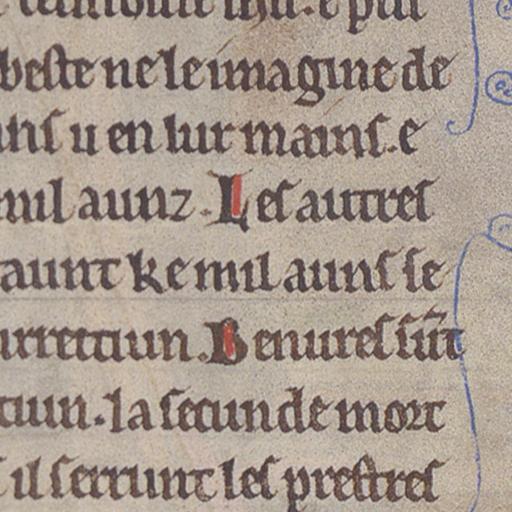 beste ne le imagine de
u en lur mains. e
mil aunz. Les autres
aunt ke mil auns se
urrectiun. Benures sũt
ciun. la secunde mort
il serrunt les prestres